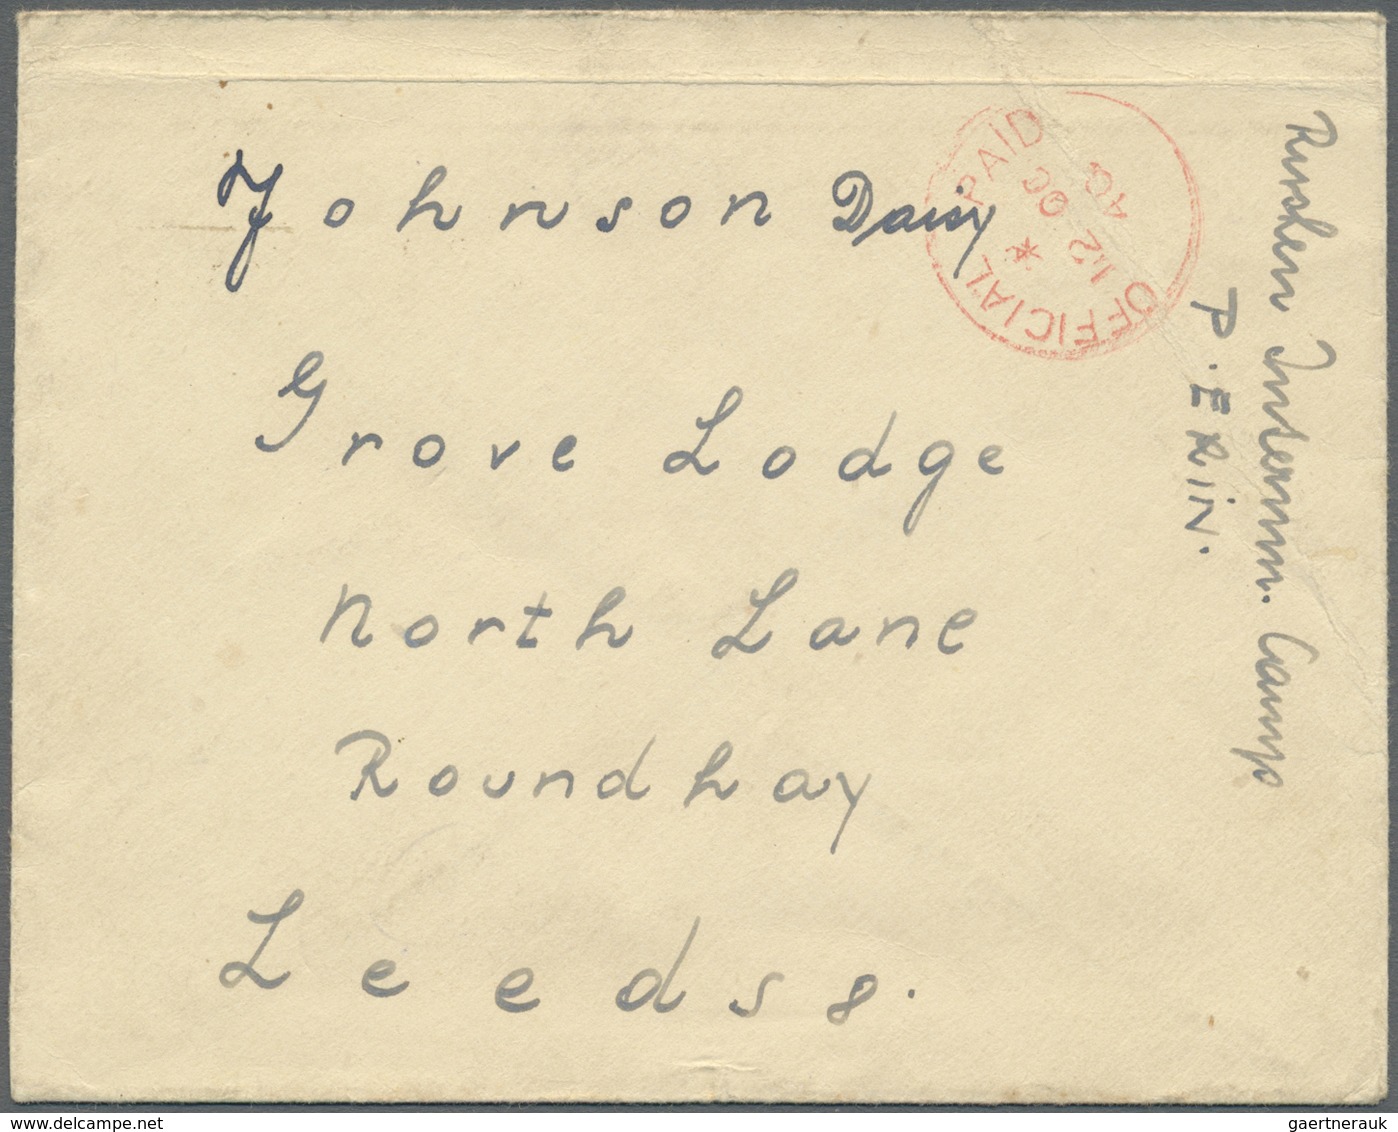 Johnson Daisy
Grove Lodge
North Lane
Roundhay
Leeds 8.
OFFICIAL PAID
12 OC
40
Rushen Internm. Camp
P. ERIN.
gaertnerauk
www.delcampe.net